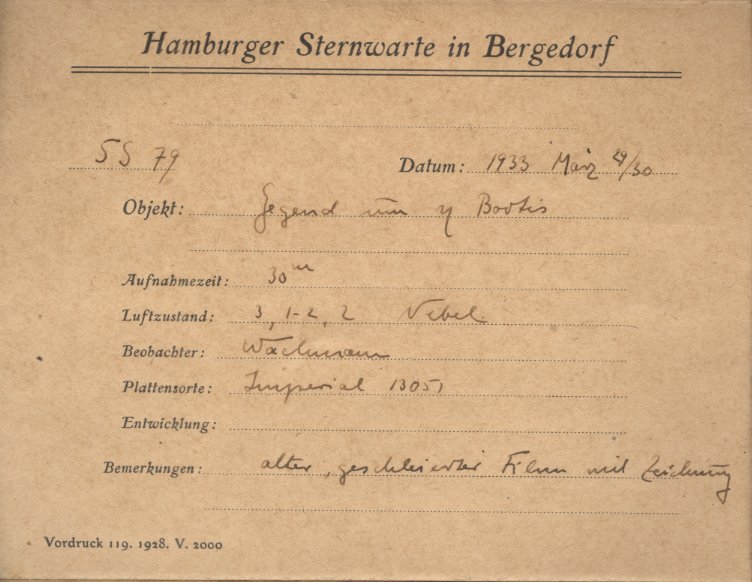 Hamburger Sternwarte in Bergedorf
SS 79 Datum: 1933 März 29/30
Objekt: Gegend um η Bootis
Aufnahmezeit: 30m
Luftzustand: 3, 1-2, 2 Nebel
Beobachter: Wachmann
Plattensorte: Imperial 1305)
Entwicklung:
Bemerkungen: alter, geschleierter Film mit Zeichnung
Vordruck 119. 1928. V. 2000